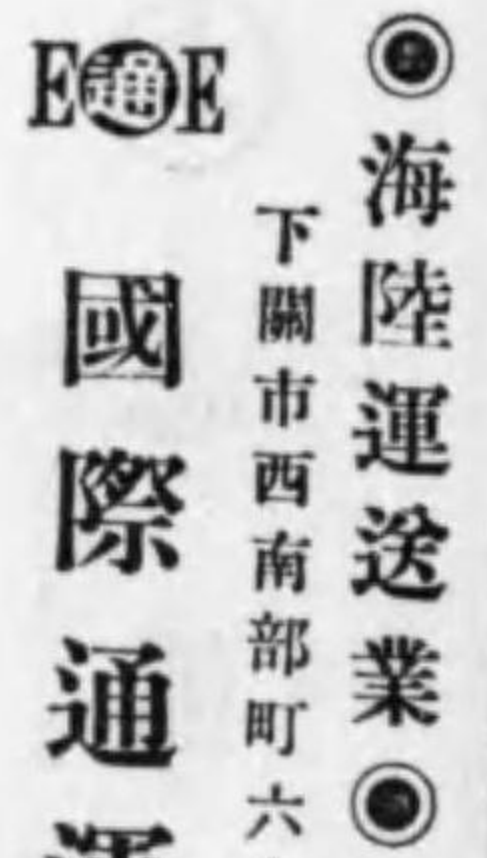 ◉海陸運送業◉
下關市西南部町六
E通E
國際通運